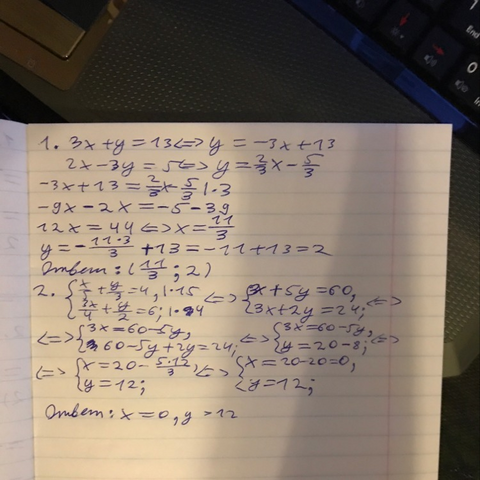 1. 3x+y=13<=>y=-3x+13
2x-3y=5<=>y=2/3x-5/3
-3x+13=2/3x-5/3|·3
-9x-2x=-5-39
12x=44<=>x=11/3
y=-11·3/3+13=-11+13=2
Ответ: (11/3; 2)
2. {x/5+y/3=4, |·15 <=> {3x+5y=60, <=>
{3x/4+y/2=6; |·4 {3x+2y=24;
<=> {3x=60-5y, <=> {3x=60-5y, <=>
{60-5y+2y=24; {y=20-8;
<=> {x=20-5·12/3 <=> {x=20-20=0,
{y=12; {y=12;
Ответ: x=0, y=12
End
0